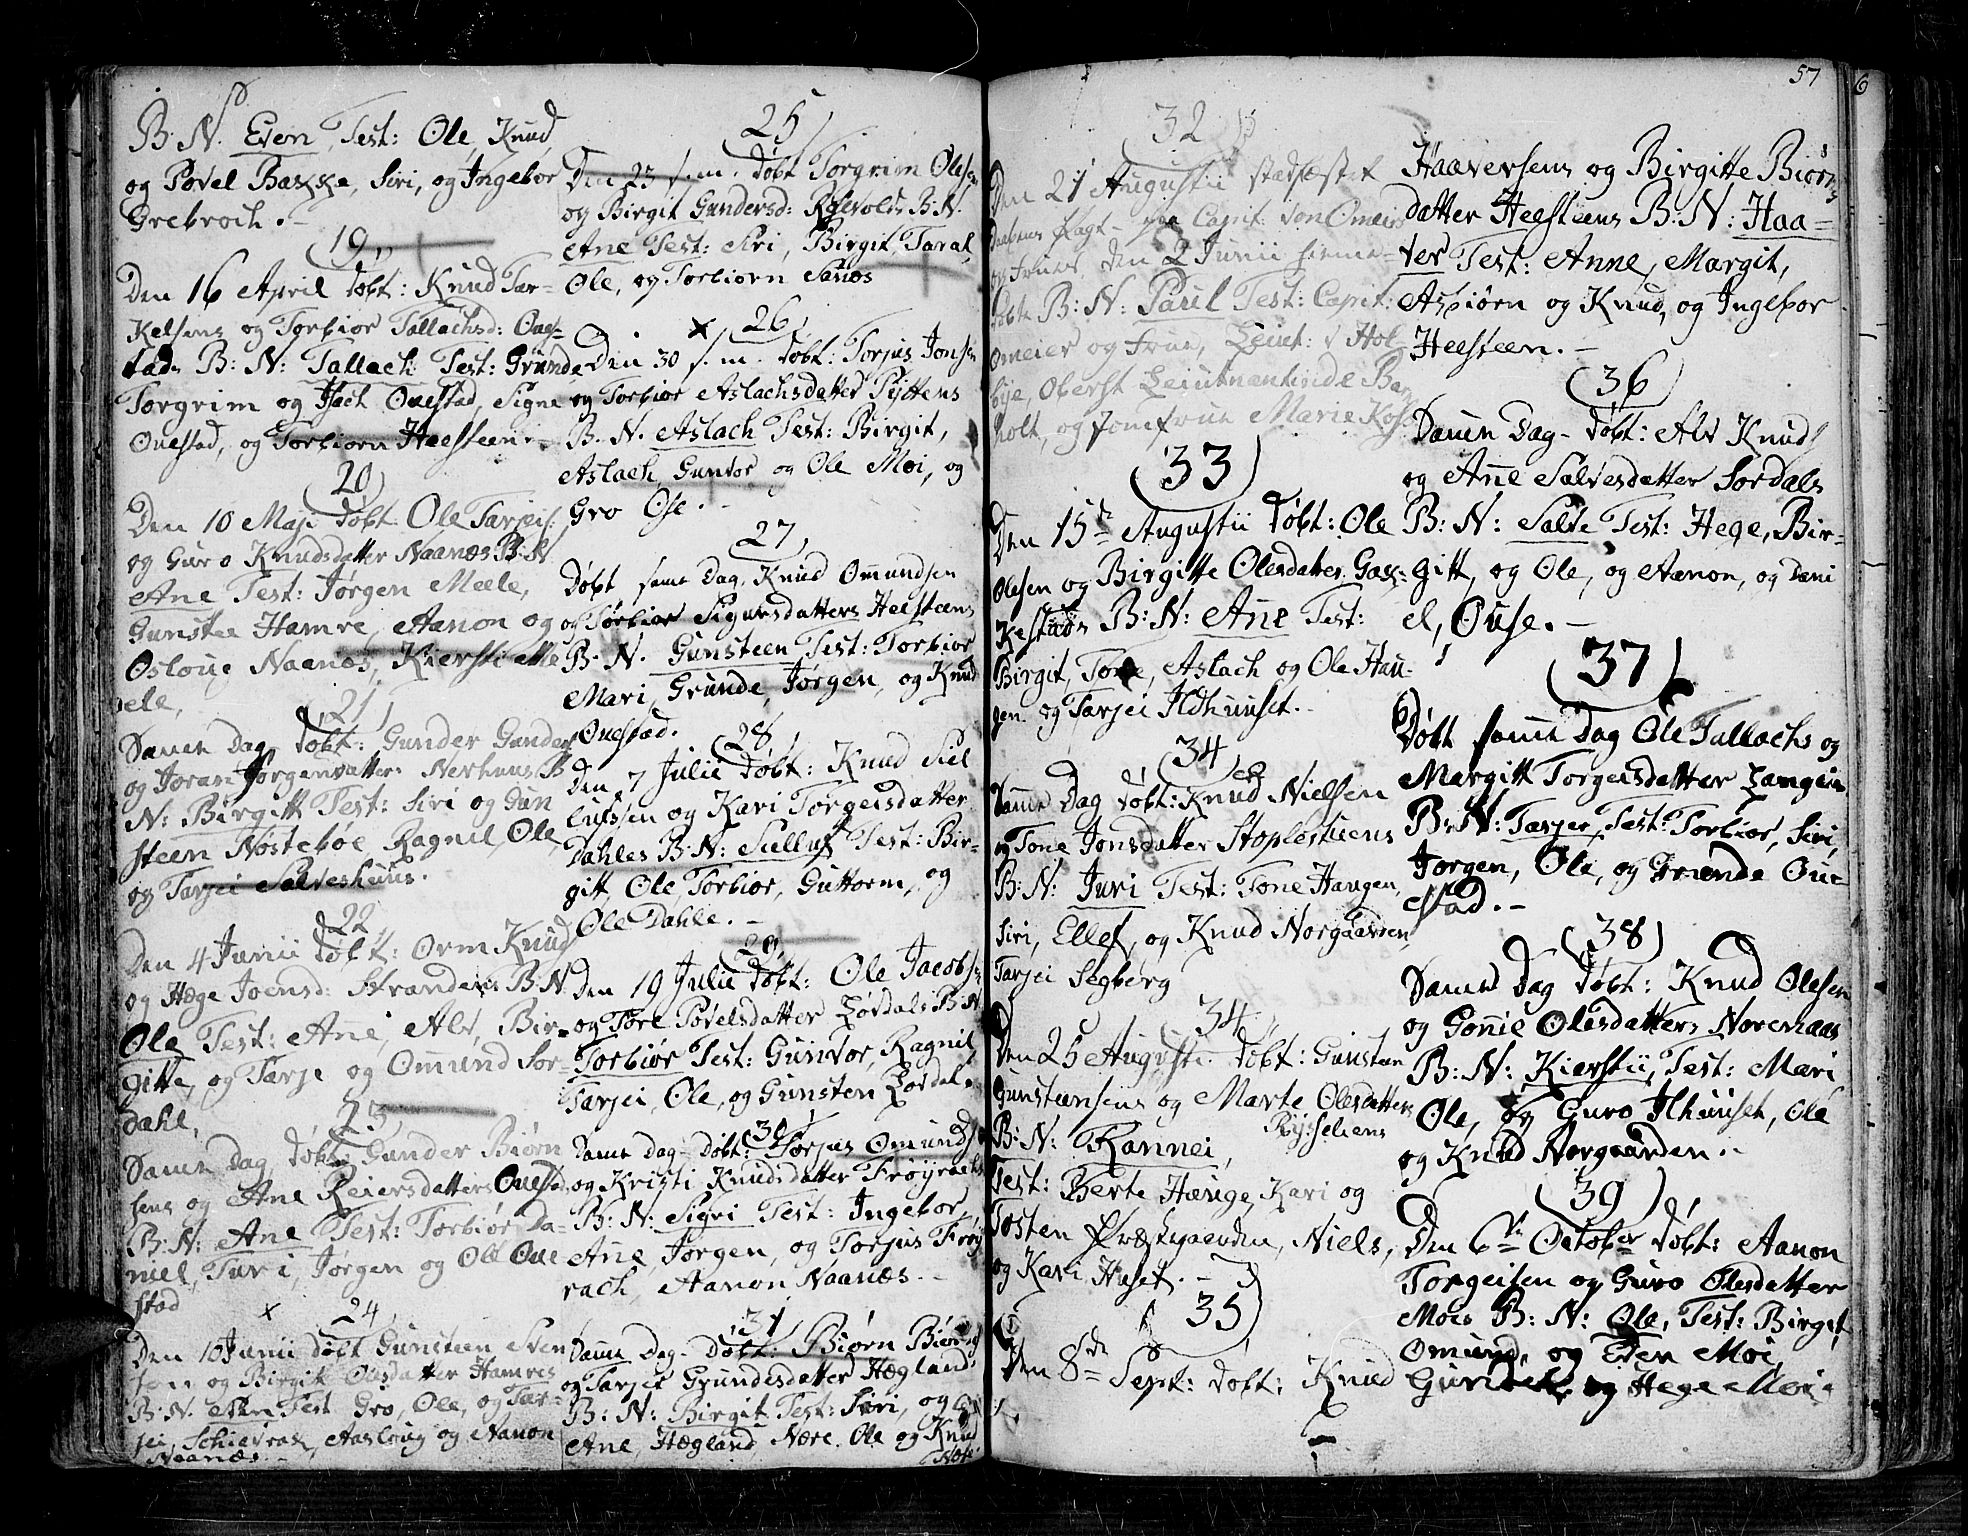 B: N. Even, Test: Ole, Knud,
og Povel Bakke, Siri, og Ingebor
Grebroch. -
19
Den 16 April Døbt: Knud Tar-
Kelsens og Torbior Tallachsd: Oues-
tads B: N: Tallach Test: Grunde,
Torgrim og Isach Ouestad, Signe
Ouestad, og Torbiorn Heesteen. -
20
Den 10 Maji Døbt Ole Tarjeis:
og Guro Knudsdatter Naanæs B: N
Ane Test: Jørgen Meele,
Gunstee Hamre, Aanon og
Osloug Naanæs, Kiersti Me
ele,
21
Samme Dag, Døbt: Gunder Gunders
og Joran Jørgensdatters Nerhuus B
N: Birgitt Test: Siri og Gun
steen Nostebøe Ragnil, Ole,
og Tarjei Salveshuus.
22
Den 4 Junii Døbt: Orm Knud
og Hæge Joensd: Strandens B: N.
Ole Test: Ane, Alv, Bir-
gitte, og Tarje og Omund Sor-
dahl,
23
Samme Dag, Døbt: Gunder Biørn
sens og Ane Reiersdatters Ouestad
B: N: Ane Test: Torbiør, Da-
niel, Turi, Jørgen og Ole Oue
stad
x 24
Den 10 Junii Døbt Gunsteen Even
sen og Birgit Olesdatter Hamres
B: N. Even Test Gro, Ole, og Tar-
jei, Aasloug og Aanon
Naanæs. -
25
Den 23 s. m. Døbt Torgrim Olesen
og Birgit Gundersd: B: N.
Ane Test: Siri, Birgit, Taral,
Ole, og Torbiorn Sanos
x 26
Den 30 s. m. Døbt: Torjus Jonsen
og Torbior Aslachsdatter Pyttens
B. N. Aslach Test: Birgit,
Aslach, Gunvor og Ole Moi, og
Gro Ose. -
27
Døbt, samt Dag, Knud Omundsen
og Torbior Sigursdatters Heesteens
B. N. Gunsteen Test: Torbior
Mari, Grunde, Jørgen, og Knud
Ouestad.
28
Den 7 Julii Døbt: Knud Siel
lufssen og Kari Torgeisdatter
Dahles B: N:Selluf Test: Bir-
gitt, Ole, Torbior, Guttorm, og
Ole Dahle. -
29
Den 19 Julii Døbt: Ole Jacobsen
og Tore Povelsdatter Lordals B: N
Torbiør Test: Gunvor, Ragnil,
Tarjei, Ole, og Gunsten Lordal.
30
Samme Dag- Døbt: Torjus Omunds
og Kristi Knudsdatter Frøyraks
B: N: Sigri Test: Ingebor,
Ane, Jorgen, og Torjus Frøy
rach, Aanon Naanæs. -
31
Samme Dag- Døbt: Biørn Biørns
og Tarjer Grundesdatter Hægland:
B: N: Birgit Test: Siri, og
Ane, Hægland, Nære, Ole og Knud
57
6
32
Den 21 Augustii stadfæstet
Capit: von Omeiers
og Frues, den 2 Junii hieme-
døbte B: N: Paul Test: Capit:
Omeier og Frue, Leiut: v Hol-
bye, Oberst Leiutnantinde Ber
holt, og Jomfrue Marie Koss
33
Den 15de Augustii Døbt: Ole
Olesen og Birgitte Olesdatter Gaas-
Kestads B: N: Ane Test:
Birgit, Tore, Aslach og Ole Hau-
gen og Tarjei Ildhuuset. -
34
Samme Dag Døbt: Knud Nielsen
og Tone Jonsdatter Stoplestuens
B: N: Juri Test: Tone Haugen,
Siri, Ellef, og Knud Norgaarden,
Tarjei Segberg
34
Den 25 Augusti. Døbt: Gunsteen
Gunsteensens og Marte Olesdatters
Rysseliens
B: N: Rannei,
Test: Berte Hæuge, Kari og
Tosten Præstgaarden, Niels,
og Kari Huset. -
35
Den 8de Sept: Døbt: Knud
Haaversens og Birgitte Biørns
datter Heesteens B: N: Haa-
ver Test: Anne, Margit,
Asbiørn og Knud, og Ingebor
Heesteen. -
36
Samme Dag- Døbt: Alv Knuds
og Ane Salvesdatter Sordals
B: N: Salve Test: Hege, Bir-
gitt, og Ole, og Aanon, og Dani
el, Ouse. -
37
Døbt samme Dag Ole Tallachs og
Margitt Torgeisdatter Langeim
B: N: Tarjer, Test: Torbior, Siri,
Jorgen, Ole, og Grunde Oue
stad. -
38
Samme Dag Døbt: Knud Olesen
og Gonnie Olesdatters Noremaas
B: N: Kierstii, Test: Mari
Ole, og Guro Ilhuuset, Ole
og Knud Norgaarden. -
39
Den 6te October Døbt: Aanon
Torgeisen og Guro Olesdatter
Moes B: N: Ole, Test: Birgit,
Omund, og Even Moi,
og Hege Moi.